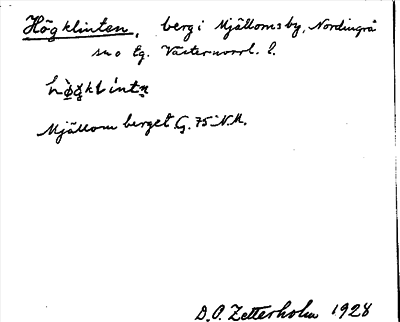 Högklinten, berg i Mjälloms by, Nordingrå
sn o tg. Västernorrl. l.
Mjällom berget G. 75 N.M.
D.O. Zetterholm 1928